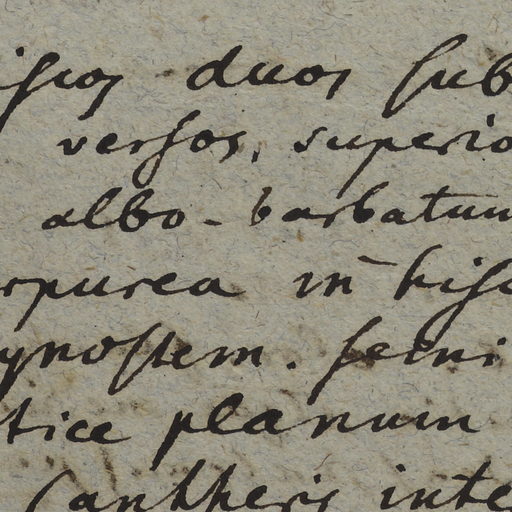 duos sub
versos, superio
albo-barbatum
rpurea in hisc
ynostem. femi
tice planum
(antheris inte